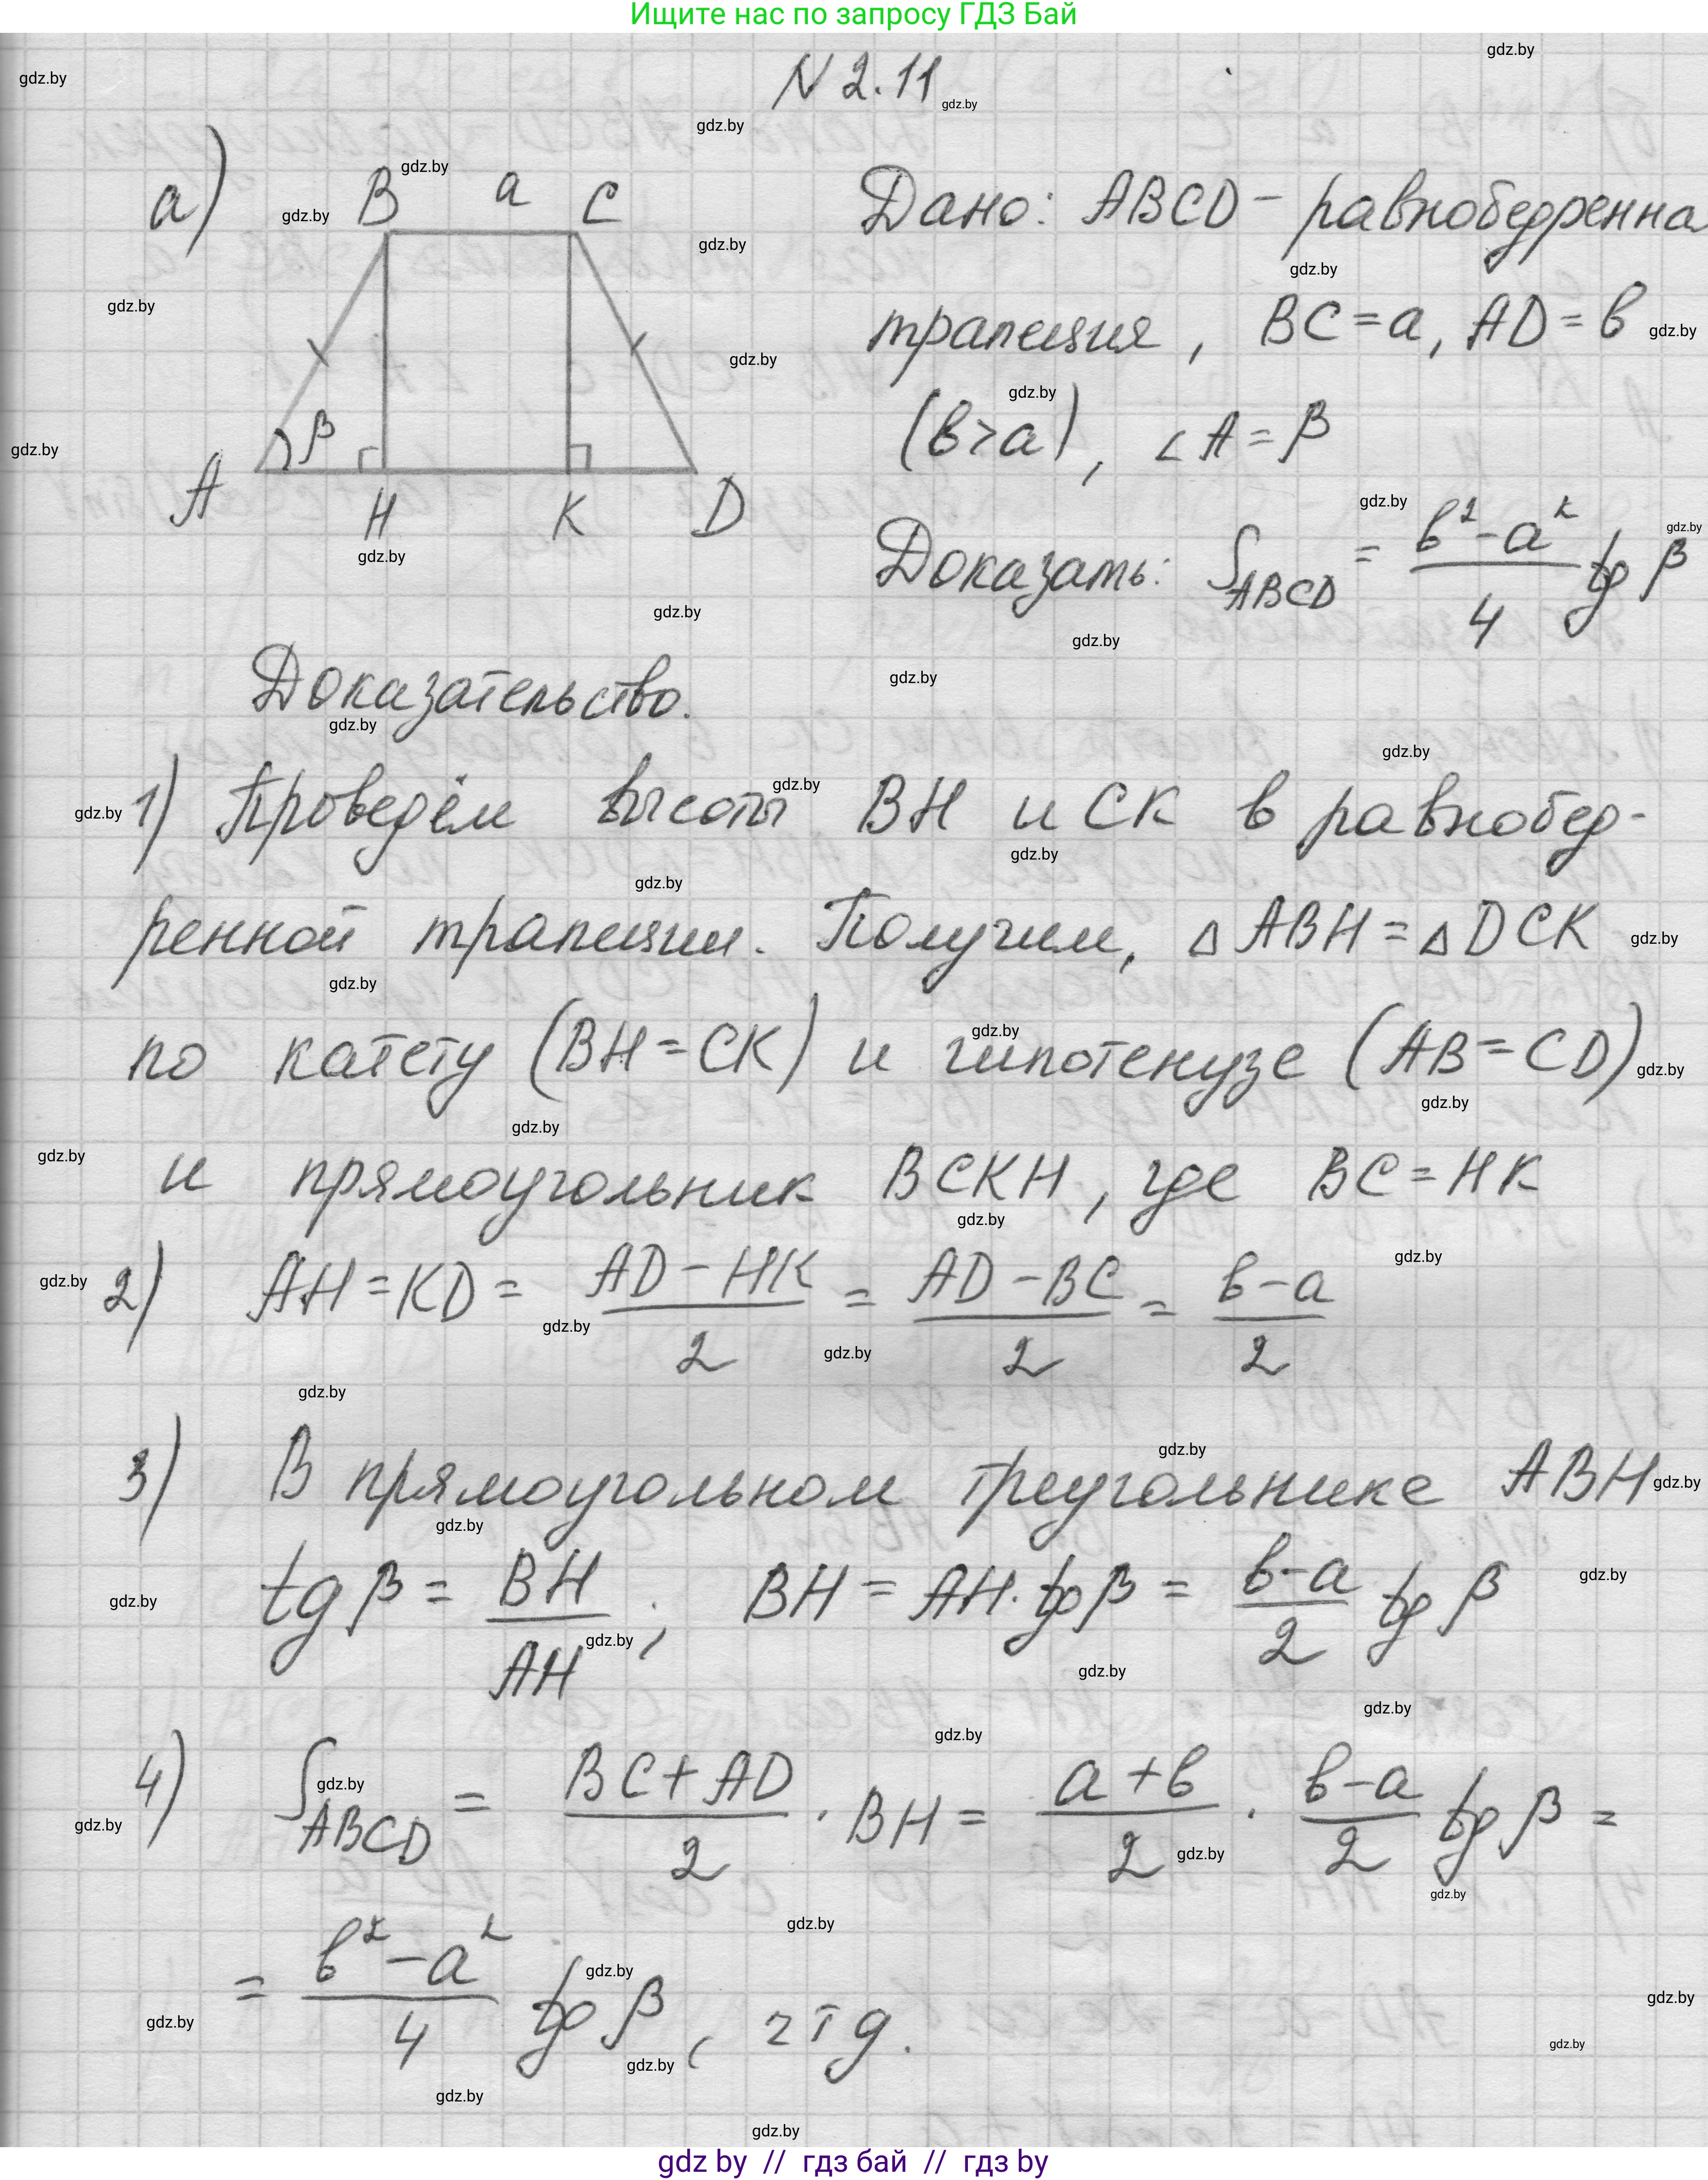 Ищите нас по запросу ГДЗ Бай
N 2.11
а)
B a C
A β H K D
Дано: ABCD – равнобедренна
трапеция, BC = a, AD = b
(b > a), ∠A = β
Доказать: S_ABCD = (b² - a²)/4 tg β
Доказательство.
1) Проведём высоты BH и CK в равнобед-
ренной трапеции. Получим, △ABH = △DCK
по катету (BH = CK) и гипотенузе (AB = CD)
и прямоугольник BCKH, где BC = HK
2) AH = KD = (AD - HK)/2 = (AD - BC)/2 = (b - a)/2
3) В прямоугольном треугольнике ABH
tg β = BH/AH; BH = AH · tg β = (b - a)/2 tg β
4) S_ABCD = (BC + AD)/2 · BH = (a + b)/2 · (b - a)/2 tg β =
= (b² - a²)/4 tg β, чтд.
gdz by // гдз бай // гдз by